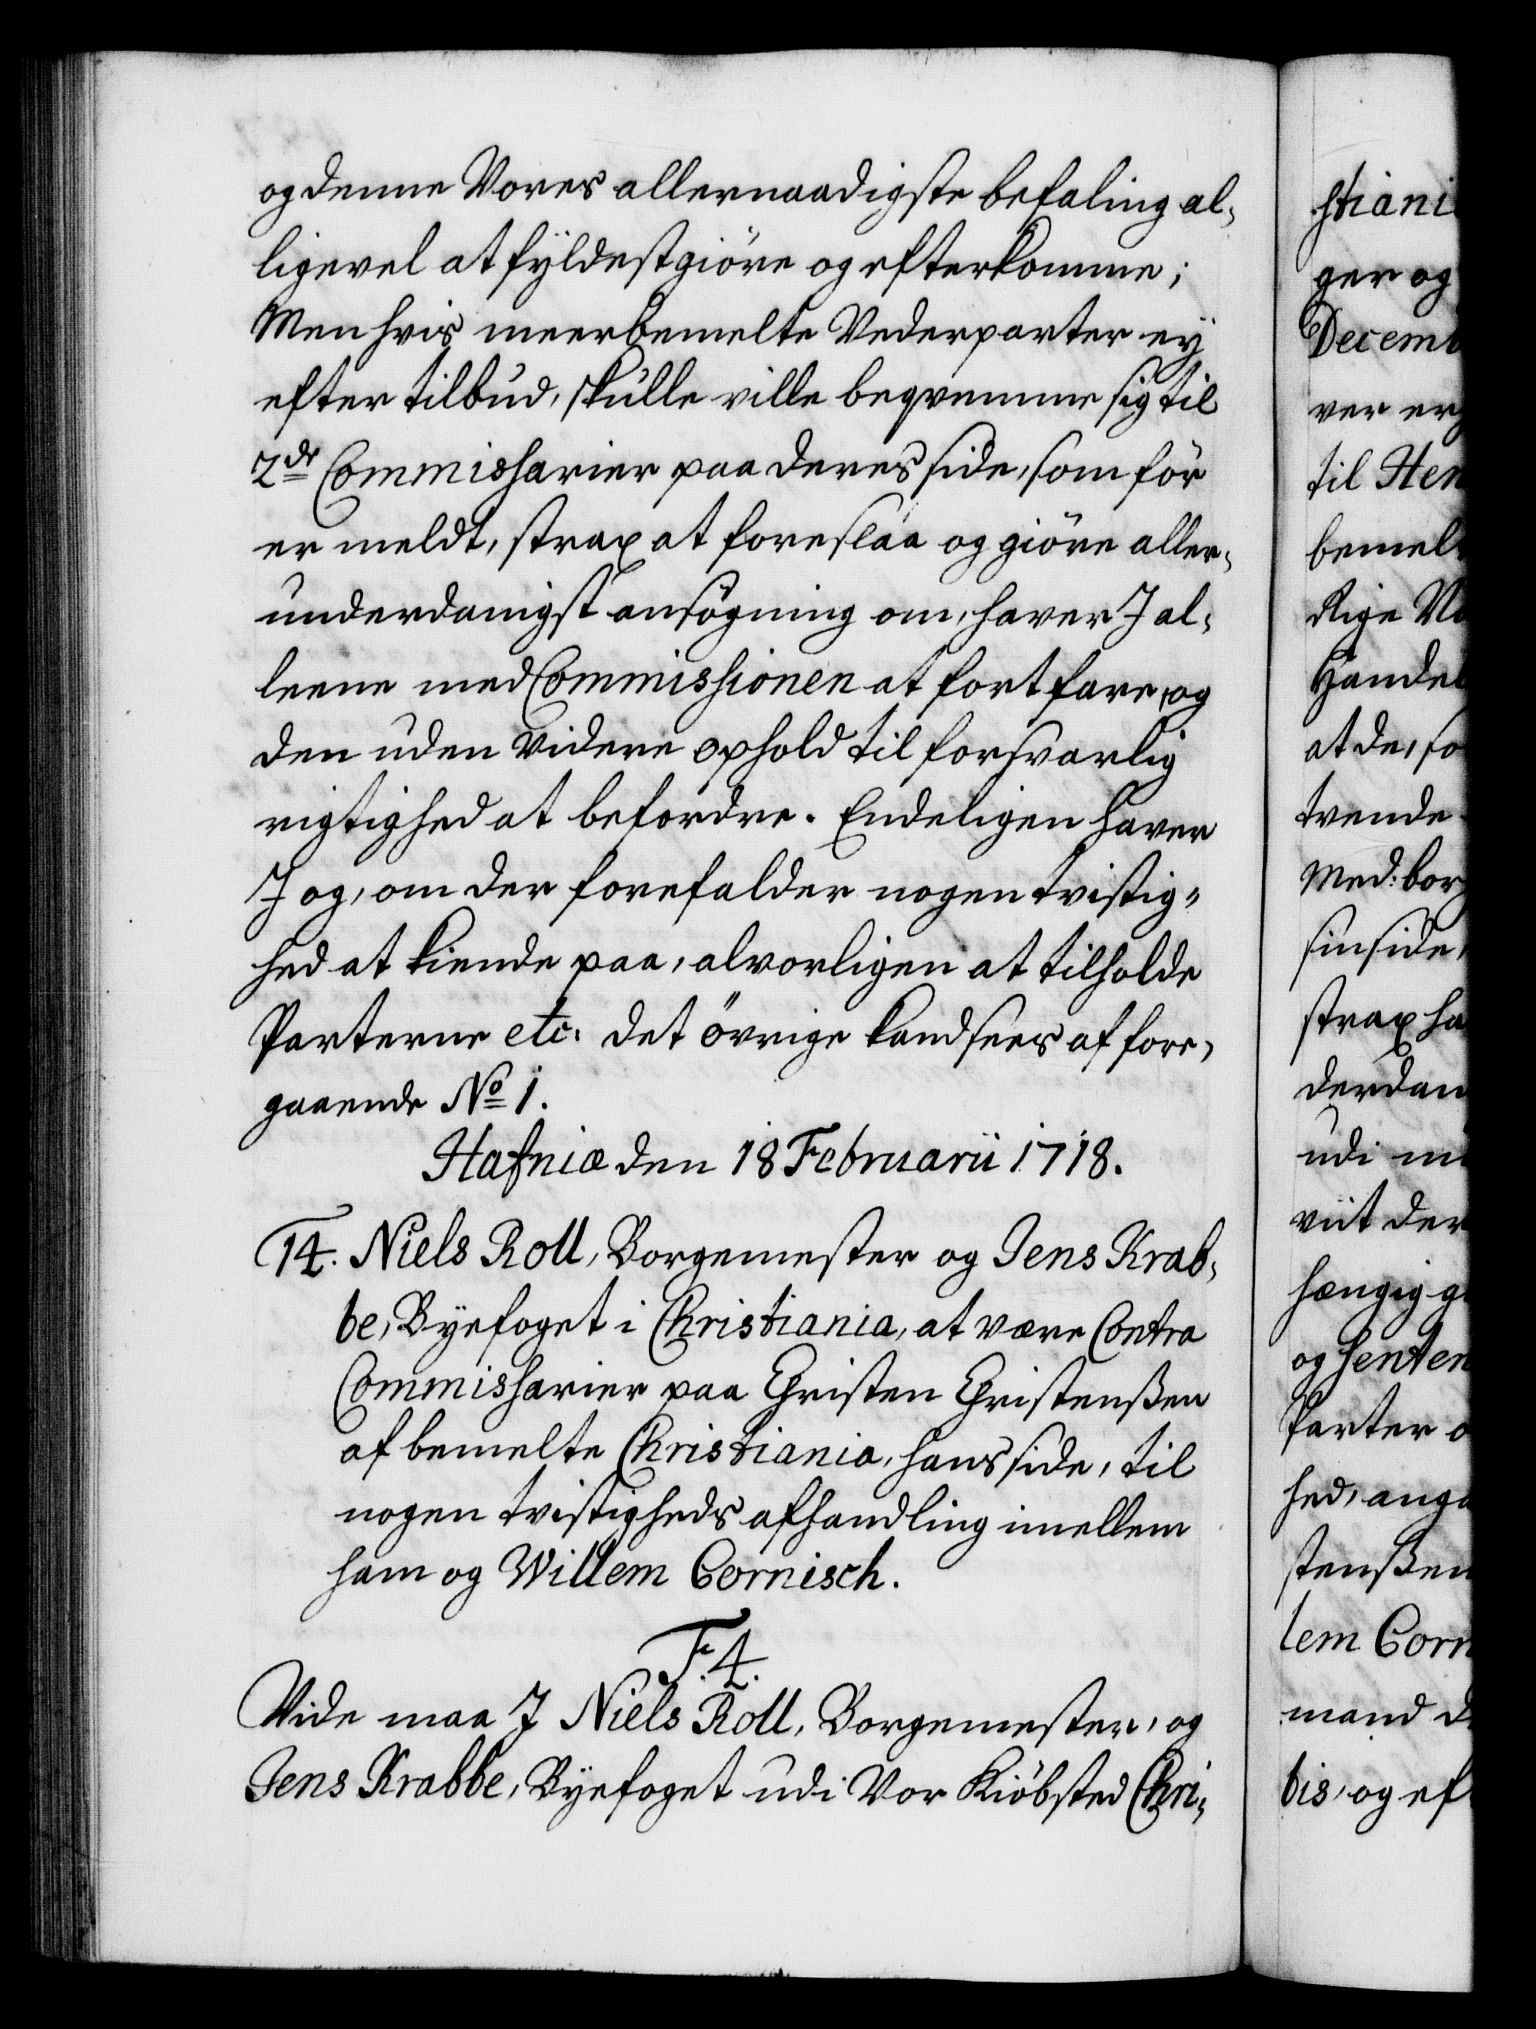 og denne Vores allernaadigste befaling al-
ligevel at fyldestgiöre og efterkomme;
Men hvis meerbemelte Vederparter ey
efter tilbud, skulle ville beqvemme sig til
2de Commissarier paa deres side, som för
er meldt, strax at foreslaa og giöre aller-
underdanigst ansögning om, haver I al-
leene med Commissionen at fortfare, og
den uden videre ophold til forsvarlig
rigtighed at befordre. Endeligen haver
I og, om der forefalder nogen tvistig-
hed at kiende paa, alvorligen at tilholde
Parterne etc: det övrige kand sees af fore-
gaaende No 1.
Hafniæ den 18 Februarii 1718.
14. Niels Roll, Borgemester og Jens Krab-
be, Byefoget i Christiania, at være Contra
Commissarier paa Christen Christenßen
af bemelte Christiania, hans side, til
nogen tvistigheds afhandling imellem
ham og Willem Cornisch.
F. 4.
Vide maa I Niels Roll, Borgemester, og
Jens Krabbe, Byefoget udi Vor Kiöbsted Chri-
stiani
ger og
Decemb
ver er
til Hen
bemel
Rige No
Handel
at de, so
tvende
Med: bor
sin side,
strax ha
derdan
udi mi
viit der
hængig g
og senten
Parter o
hed, anga
stenßen
lem Corn
mand d
bis, og ef